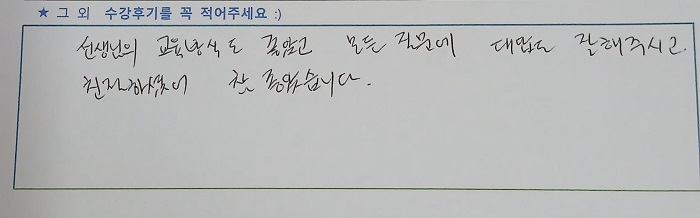 ★ 그 외 수강후기를 꼭 적어주세요 :)
선생님의 교육방식도 좋았고 모든 질문에 대답도 잘해주시고
친절하셨어 참 좋았습니다.